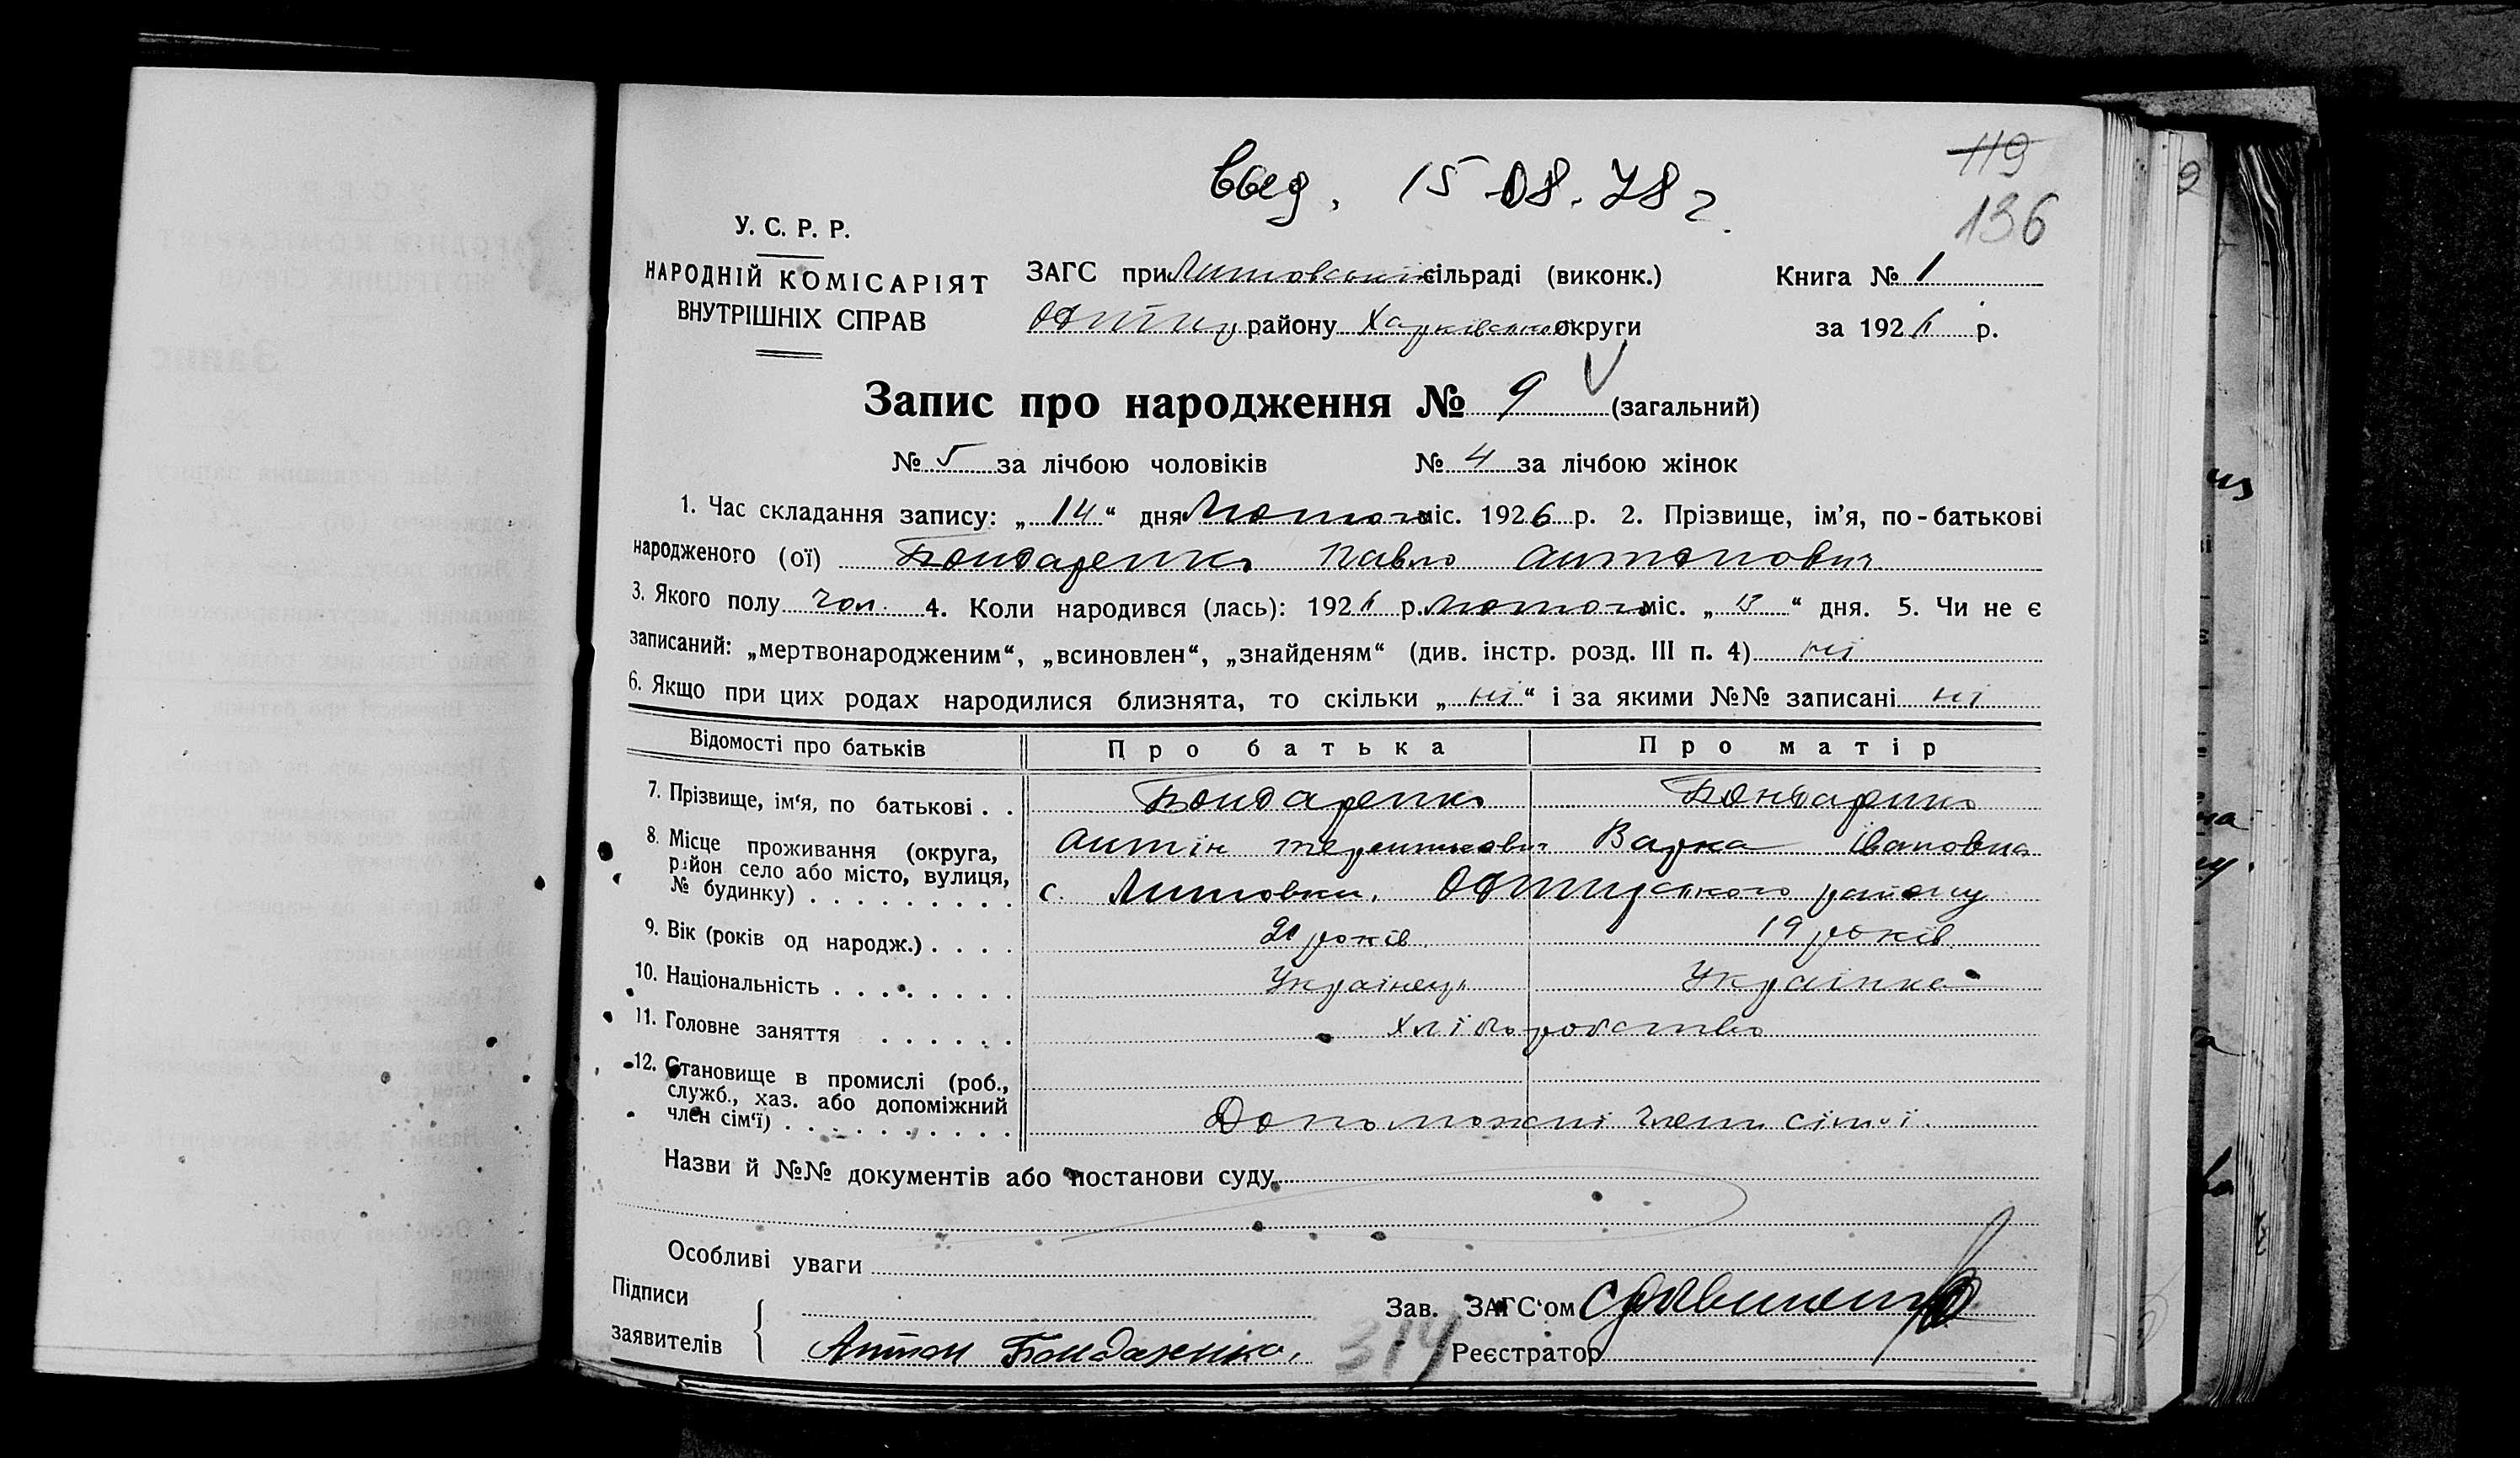 119
136
выд. 15.08.78 г.
У. С. Р. Р.
НАРОДНІЙ КОМІСАРІЯТ
ВНУТРІШНІХ СПРАВ
ЗАГС при Литовській сільраді (виконк.)
району Харківської округи
Книга № 1
за 1926 р.
Запис про народження № 9 (загальний)
№ 5 за лічбою чоловіків № 4 за лічбою жінок
1. Час складання запису: „14“ дня Лютого міс. 1926 р. 2. Прізвище, ім’я, по-батькові
народженого (ої) Бондаренко Павло Антонович
3. Якого полу чол. 4. Коли народився (лась): 1926 р. лютого міс. „13“ дня. 5. Чи не є
записаний: „мертвонародженим“, „всиновлен“, „знайденям“ (див. інстр. розд. III п. 4) ні
6. Якщо при цих родах народилися близнята, то скільки „ні“ і за якими №№ записані ні
Відомості про батьків Про батька Про матір
7. Прізвище, ім‘я, по батькові . . Бондаренко Бондаренко
Антін Терентьевич Варка Івановна
8. Місце проживання (округа,
район село або місто, вулиця,
№ будинку) . . . . . . . . . с. Литовка, району
9. Вік (років од народж.) . . . . 20 років 19 років
10. Національність . . . . . . . . Українець Українка
11. Головне заняття . . . . . . хліборобство
12. Становище в промислі (роб.,
служб., хаз. або допоміжний
член сім‘ї) . . . . . . . . . . Допоможні члени сімьї.
Назви й №№ документів або постанови суду
Особливі уваги
Підписи
заявителів
Антон Бондаренко.
Зав. ЗАГС‘ом
314
Реєстратор